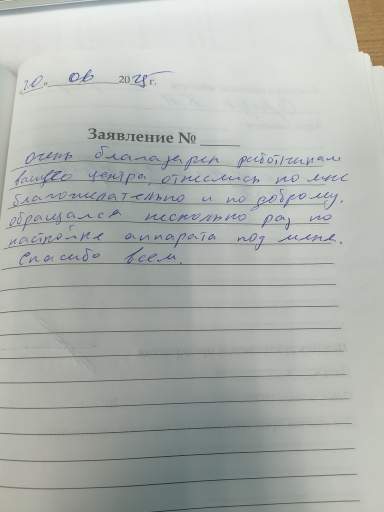 20. 08 2025 г.
Заявление № ____
очень благадарен работникам
вашего центра, отнеслись ко мне
благожелательно и по доброму.
обращался несколько раз по
настройке аппарата под меня.
Спасибо всем.